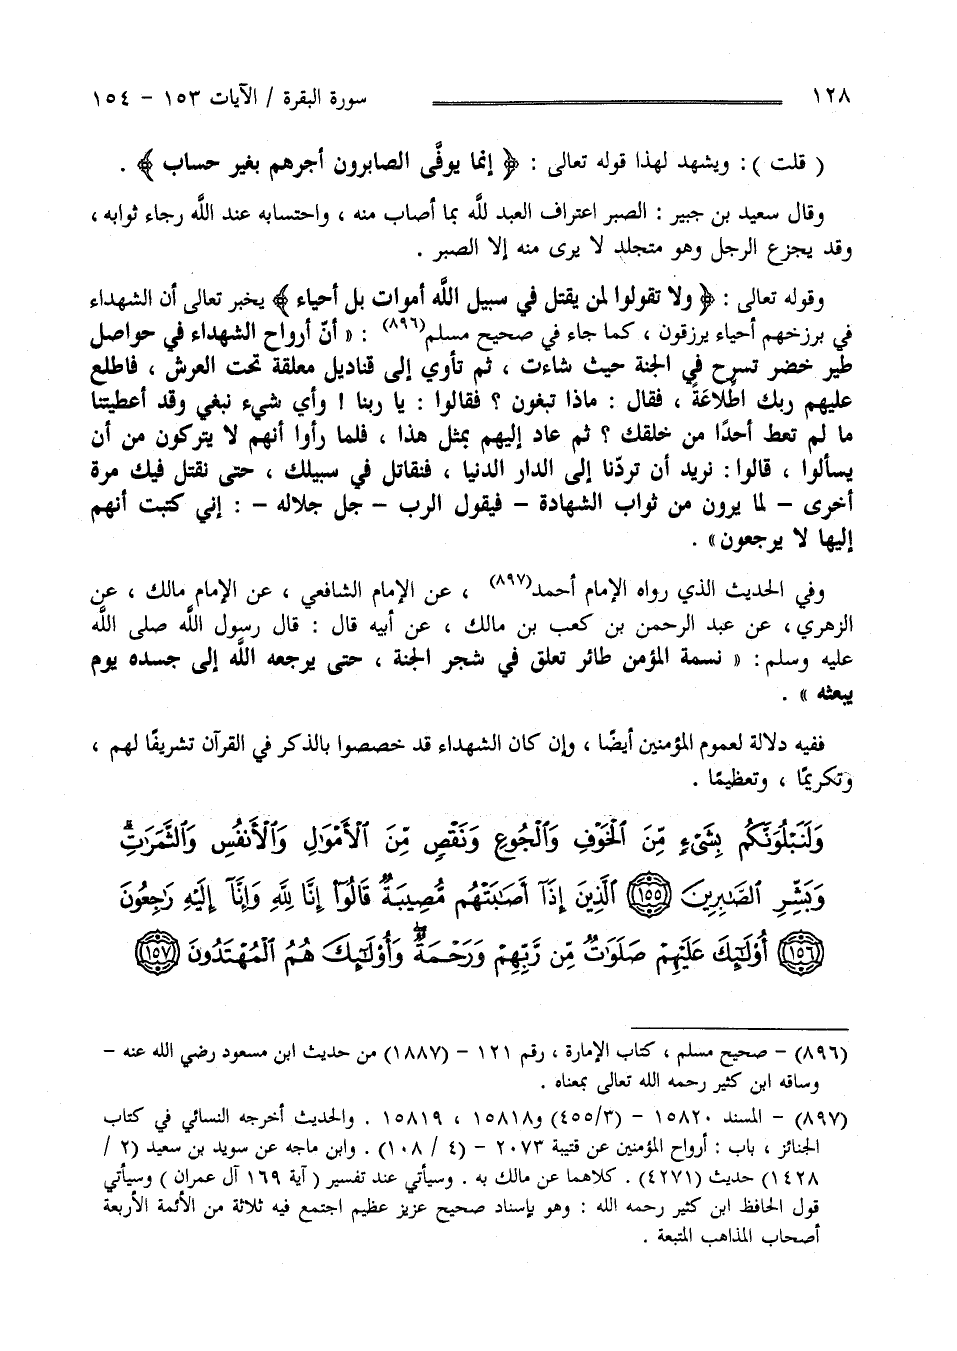 ١٢٨ سورة البقرة / الآيات ١٥٣ - ١٥٤
( قلت ) : ويشهد لهذا قوله تعالى : ﴿ إنما يوفَّى الصابرون أجرهم بغير حساب ﴾ .
وقال سعيد بن جبير : الصبر اعتراف العبد للَّه بما أصاب منه ، واحتسابه عند اللَّه رجاء ثوابه ،
وقد يجزع الرجل وهو متجلد لا يرى منه إلا الصبر .
وقوله تعالى : ﴿ ولا تقولوا لمن يقتل في سبيل اللَّه أموات بل أحياء ﴾ يخبر تعالى أن الشهداء
في برزخهم أحياء يرزقون ، كما جاء في صحيح مسلم(٨٩٦) : « أنّ أرواح الشهداء في حواصل
طير خضر تسرح في الجنة حيث شاءت ، ثم تأوي إلى قناديل معلقة تحت العرش ، فاطلع
عليهم ربك اطِّلاعَةً ، فقال : ماذا تبغون ؟ فقالوا : يا ربنا ! وأي شيء نبغي وقد أعطيتنا
ما لم تعط أحدًا من خلقك ؟ ثم عاد إليهم بمثل هذا ، فلما رأوا أنهم لا يتركون من أن
يسألوا ، قالوا : نريد أن تردّنا إلى الدار الدنيا ، فنقاتل في سبيلك ، حتى نقتل فيك مرة
أخرى - لما يرون من ثواب الشهادة - فيقول الرب - جل جلاله - : إني كتبت أنهم
إليها لا يرجعون» .
وفي الحديث الذي رواه الإمام أحمد(٨٩٧) ، عن الإمام الشافعي ، عن الإمام مالك ، عن
الزهري، عن عبد الرحمن بن كعب بن مالك ، عن أبيه قال : قال رسول اللَّه صلى اللَّه
عليه وسلم : « نسمة المؤمن طائر تعلق في شجر الجنة ، حتى يرجعه اللَّه إلى جسده يوم
يبعثه » .
ففيه دلالة لعموم المؤمنين أيضًا ، وإن كان الشهداء قد خصصوا بالذكر في القرآن تشريفًا لهم ،
وتكريمًا ، وتعظيمًا .
وَلَنَبْلُوَنَّكُم بِشَىْءٍ مِّنَ ٱلْخَوْفِ وَٱلْجُوعِ وَنَقْصٍ مِّنَ ٱلْأَمْوَٰلِ وَٱلْأَنفُسِ وَٱلثَّمَرَٰتِ ۗ
وَبَشِّرِ ٱلصَّٰبِرِينَ ١٥٥ ٱلَّذِينَ إِذَآ أَصَٰبَتْهُم مُّصِيبَةٌ قَالُوٓا۟ إِنَّا لِلَّهِ وَإِنَّآ إِلَيْهِ رَٰجِعُونَ
١٥٦ أُو۟لَٰٓئِكَ عَلَيْهِمْ صَلَوَٰتٌ مِّن رَّبِّهِمْ وَرَحْمَةٌ ۖ وَأُو۟لَٰٓئِكَ هُمُ ٱلْمُهْتَدُونَ ١٥٧
(٨٩٦) - صحيح مسلم ، كتاب الإمارة ، رقم ١٢١ - (١٨٨٧) من حديث ابن مسعود رضي الله عنه -
وساقه ابن كثير رحمه الله تعالى بمعناه .
(٨٩٧) - المسند ١٥٨٢٠ - (٤٥٥/٣) و١٥٨١٨ ، ١٥٨١٩ . والحديث أخرجه النسائي في كتاب
الجنائز ، باب : أرواح المؤمنين عن قتيبة ٢٠٧٣ - (٤ / ١٠٨) . وابن ماجه عن سويد بن سعيد (٢ /
١٤٢٨) حديث (٤٢٧١) . كلاهما عن مالك به . وسيأتي عند تفسير ( آية ١٦٩ آل عمران ) وسيأتي
قول الحافظ ابن كثير رحمه الله : وهو بإسناد صحيح عزيز عظيم اجتمع فيه ثلاثة من الأئمة الأربعة
أصحاب المذاهب المتبعة .